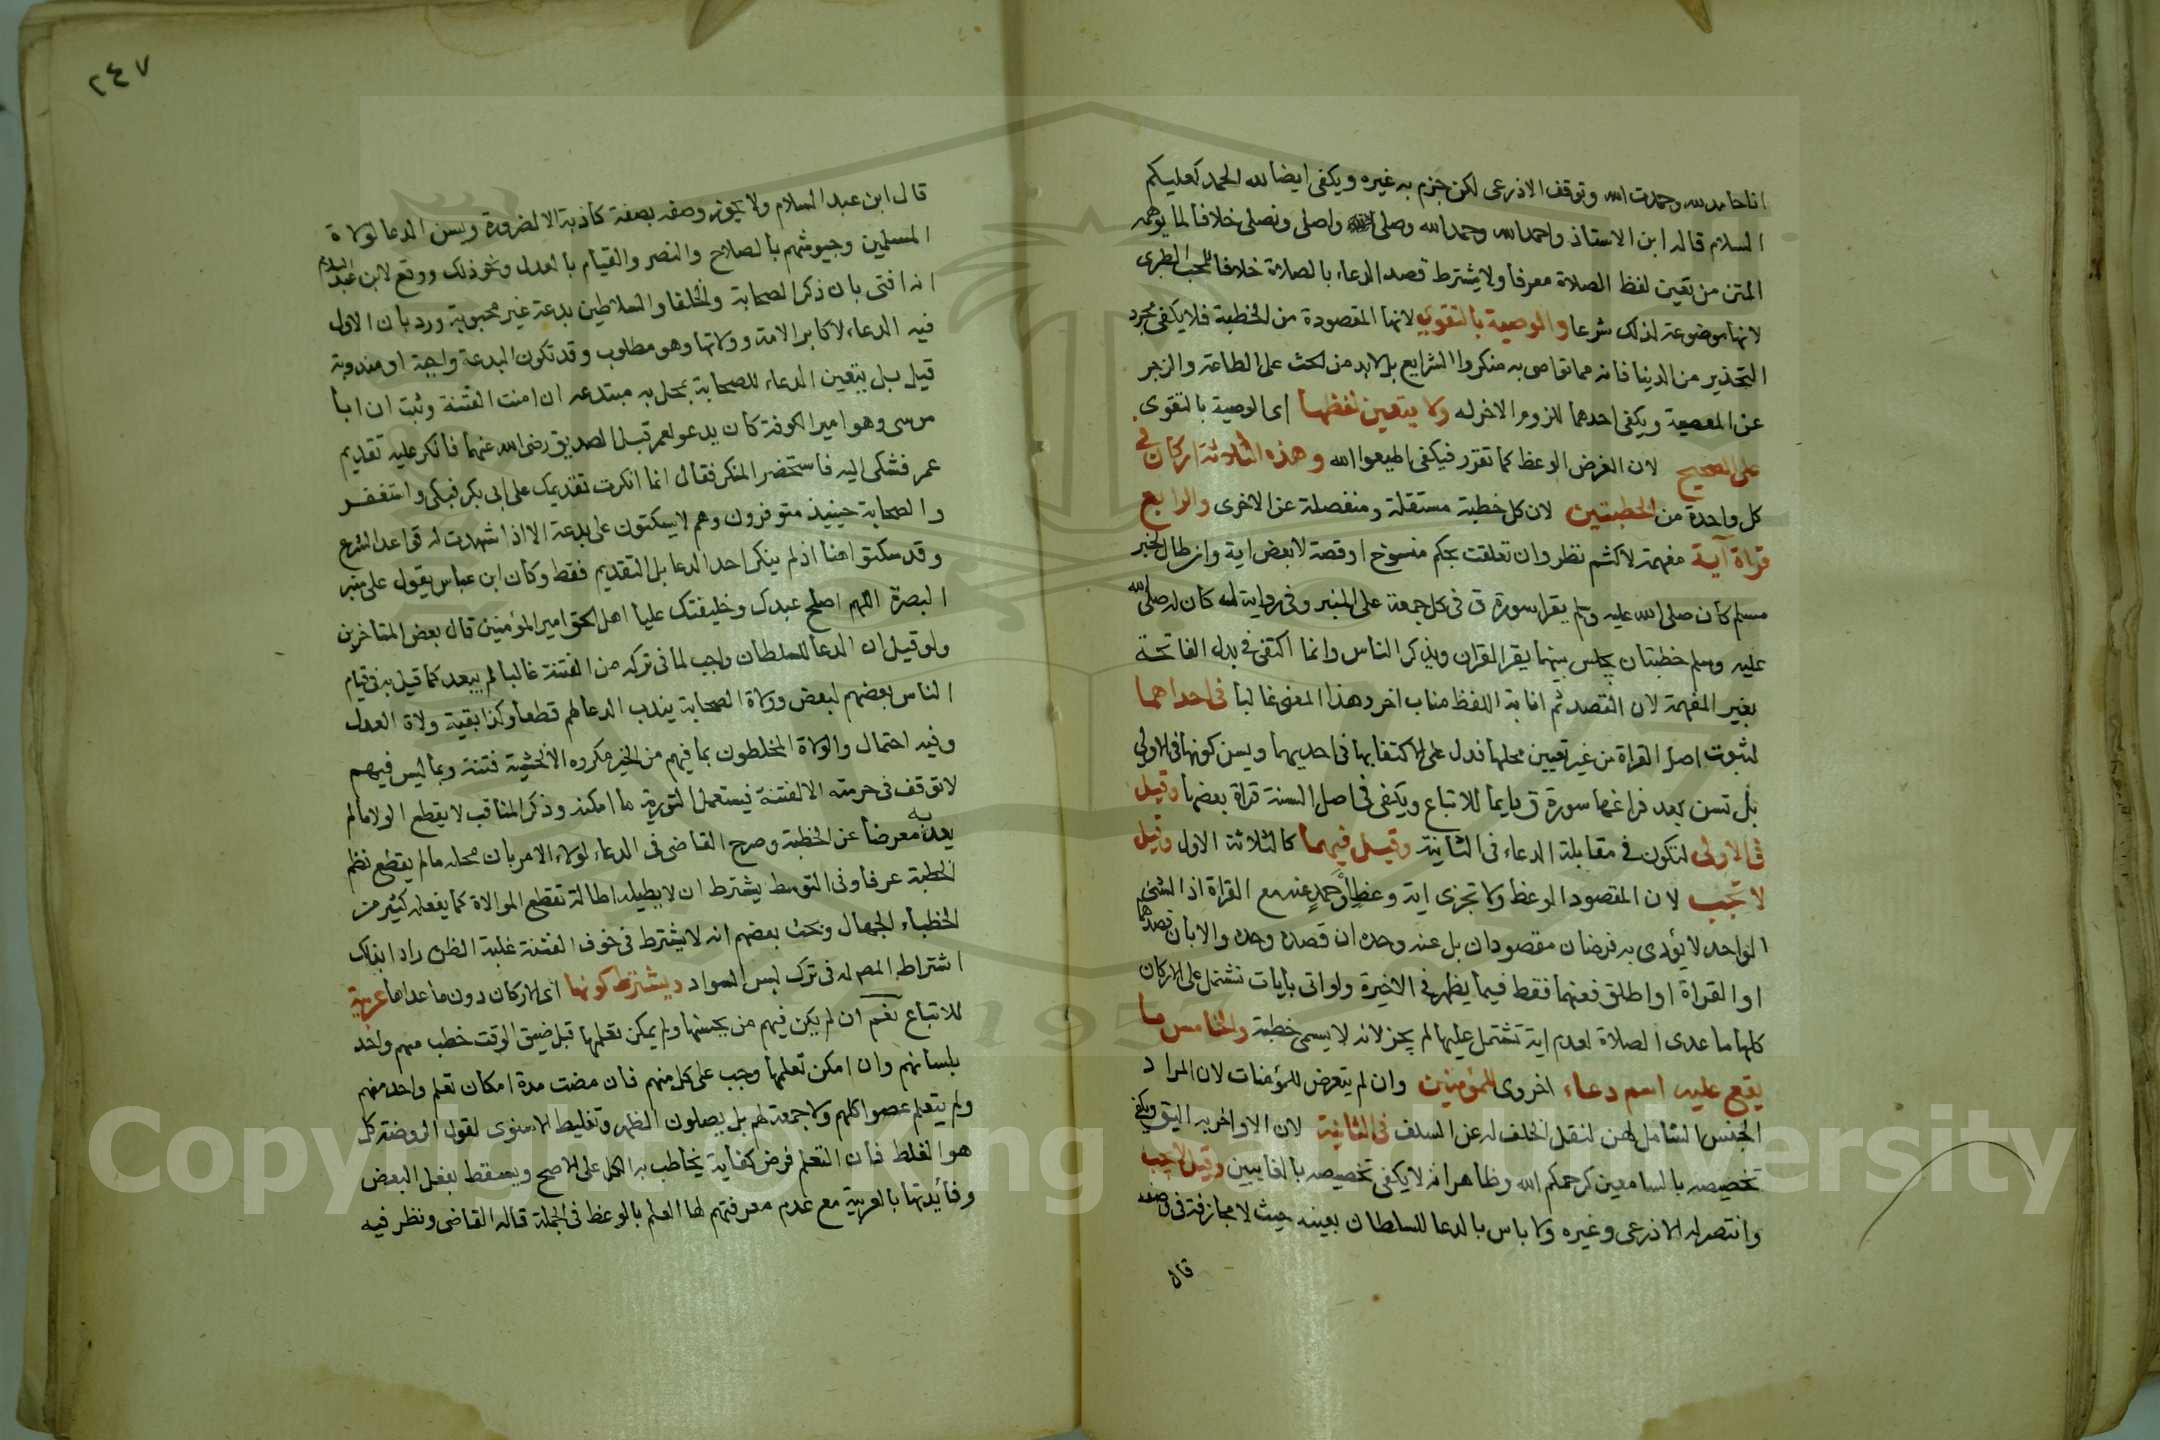 انا حامد لله وحمدت الله وتوقف الاذرعى لكن جزم به غيره ويكفى ايضا لله الحمد كعليكم
السلام قاله ابن الاستاذ واحمد الله وحمد الله وصلى الله واصلى ونصلى خلافا لما يوهمه
المتن من تعين لفظ الصلاة معرفا ولا يشترط قصد الدعاء بالصلاة خلافا للمحب الطبرى
لانها موضوعة لذلك شرعا والوصية بالتقوى لانها المقصودة من الخطبة فلا يكفى مجرد
التحذير من الدنيا فانه مما تواصى به منكروا الشرايع بل لابد من الحث على الطاعة والزجر
عن المعصية ويكفى احدهما للزوم الاخر له ولا يتعين لفظها اى الوصية بالتقوى
على الصحيح لان الغرض الوعظ كما تقرر فيكفى اطيعوا الله وهذه الثلاثة اركان فى
كل واحدة من الخطبتين لان كل خطبة مستقلة ومنفصلة عن الاخرى والرابع
قراة آية مفهمة لا كثم نظر وان تعلقت بحكم منسوخ او قصة لا بعض اية وان طال لخبر
مسلم كان صلى الله عليه وسلم يقرا سورة ق فى كل جمعة على المنبر وفى رواية له كان له صلى الله
عليه وسلم خطبتان يجلس بينهما يقرا القران ويذكر الناس وانما اكتفى فى بدل الفاتحة
بغير المفهمة لان القصد ثم انابة اللفظ مناب اخر وهذا المعنى غالبا فى احداهما
لثبوت اصل القراة من غير تعيين محلها فدل على الاكتفا بها فى احديهما ويسن كونها فى الاولى
بل تسن بعد فراغها سورة ق دايما للاتباع ويكفى فى اصل السنة قراة بعضها وقيل
فى الاولى لتكون فى مقابلة الدعاء فى الثانية وقيل فيهما كالثلاثة الاول وقيل
لا تجب لان المقصود الوعظ ولا تجزى اية وعظ او حمد عنه مع القراة اذ الشى
الواحد لا يؤدى به فرضان مقصودان بل عنه وحده ان قصده وحده والا بان قصدهما
او القراة او اطلق فعنها فقط فيما يظهر فى الاخيرة ولو اتى بايات تشتمل على الاركان
كلها ما عدى الصلاة لعدم اية تشتمل عليها لم يجز لانه لا يسمى خطبة والخامس ما
يقع عليه اسم دعاء اخروى للمؤمنين وان لم يتعرض للمؤمنات لان المراد
الجنس الشامل لهن لنقل الخلف له عن السلف فى الثانية لان الاواخر به اليق ويكفى
تخصيصه بالسامعين كرحمكم الله وظاهر انه لا يكفى تخصيصه بالغايبين وقيل لا يجب
وانتصر له الاذرعى وغيره ولا باس بالدعا للسلطان بعينه حيث لا مجازفة فى وصفه
قال
٢٤٧
قال ابن عبد السلام ولا يجوز وصفه بصفة كاذبة الا لضرورة ويسن الدعا لولاة
المسلمين وجيوشهم بالصلاح والنصر والقيام بالعدل ونحو ذلك ووقع لابن عبد السلام
انه افتى بان ذكر الصحابة والخلفا والسلاطين بدعة غير محبوبة ورد بان الاول
فيه الدعاء لاكابر الامة وولاتها وهو مطلوب وقد تكون البدعة واجبة او مندوبة
قيل بل يتعين الدعاء للصحابة بمحل به مبتدعه ان امنت الفتنة وثبت ان ابا
موسى وهو امير الكوفة كان يدعو لعمر قبل الصديق رضى الله عنهما فانكر عليه تقديم
عمر فشكى اليه فاستحضر المنكر فقال انما انكرت تقديمك على ابى بكر فبكى واستغفر
والصحابة حينيذ متوفرون وهم لا يسكتون على بدعة الا اذا شهدت له قواعد الشرع
وقد سكتوا هنا اذ لم ينكر احد الدعا بل التقديم فقط وكان ابن عباس يقول على منبر
البصرة اللهم اصلح عبدك وخليفتك عليا اهل الحق امير المؤمنين قال بعض المتاخرين
ولو قيل ان الدعا للسلطان واجب لما فى تركه من الفتنة غالبا لم يبعد كما قيل به فى قيام
الناس بعضهم لبعض وولاة الصحابة يندب الدعا لهم قطعا وكذا بقية ولاة العدل
وفيه احتمال والولاة المخلطون بما فيهم من الخير مكروه الا لخشية فتنة وبما ليس فيهم
لا توقف فى حرمته الا لفتنة فيستعمل التورية ما امكنه وذكر المناقب لا يقطع الولا ما لم
يعد به معرضا عن الخطبة وصرح القاضى فى الدعاء لولاة الامر بان محله ما لم يقطع نظم
الخطبة عرفا وفى التوسط يشترط ان لا يطيله اطالة تقطع الموالاة كما يفعله كثير من
الخطباء الجهال وبحث بعضهم انه لا يشترط فى خوف الفتنة غلبة الظن رادا بذلك
اشتراط المص له فى ترك لبس السواد ويشترط كونها اى الاركان دون ما عداها عربية
للاتباع نعم ان لم يكن فيهم من يحسنها ولم يمكن تعلمها قبل ضيق الوقت خطب منهم واحد
بلسانهم وان امكن تعلمها وجب على كل منهم فان مضت مدة امكان تعلم واحد منهم
ولم يتعلم عصوا كلهم ولا جمعة لهم بل يصلون الظهر وتغليط الاسنوى لقول الروضة كل
هو الغلط فان التعلم فرض كفاية يخاطب به الكل على الاصح ويسقط بفعل البعض
وفايدتها بالعربية مع عدم معرفتهم لها العلم بالوعظ فى الجملة قاله القاضى ونظر فيه
Copyright © King Saud University
1957